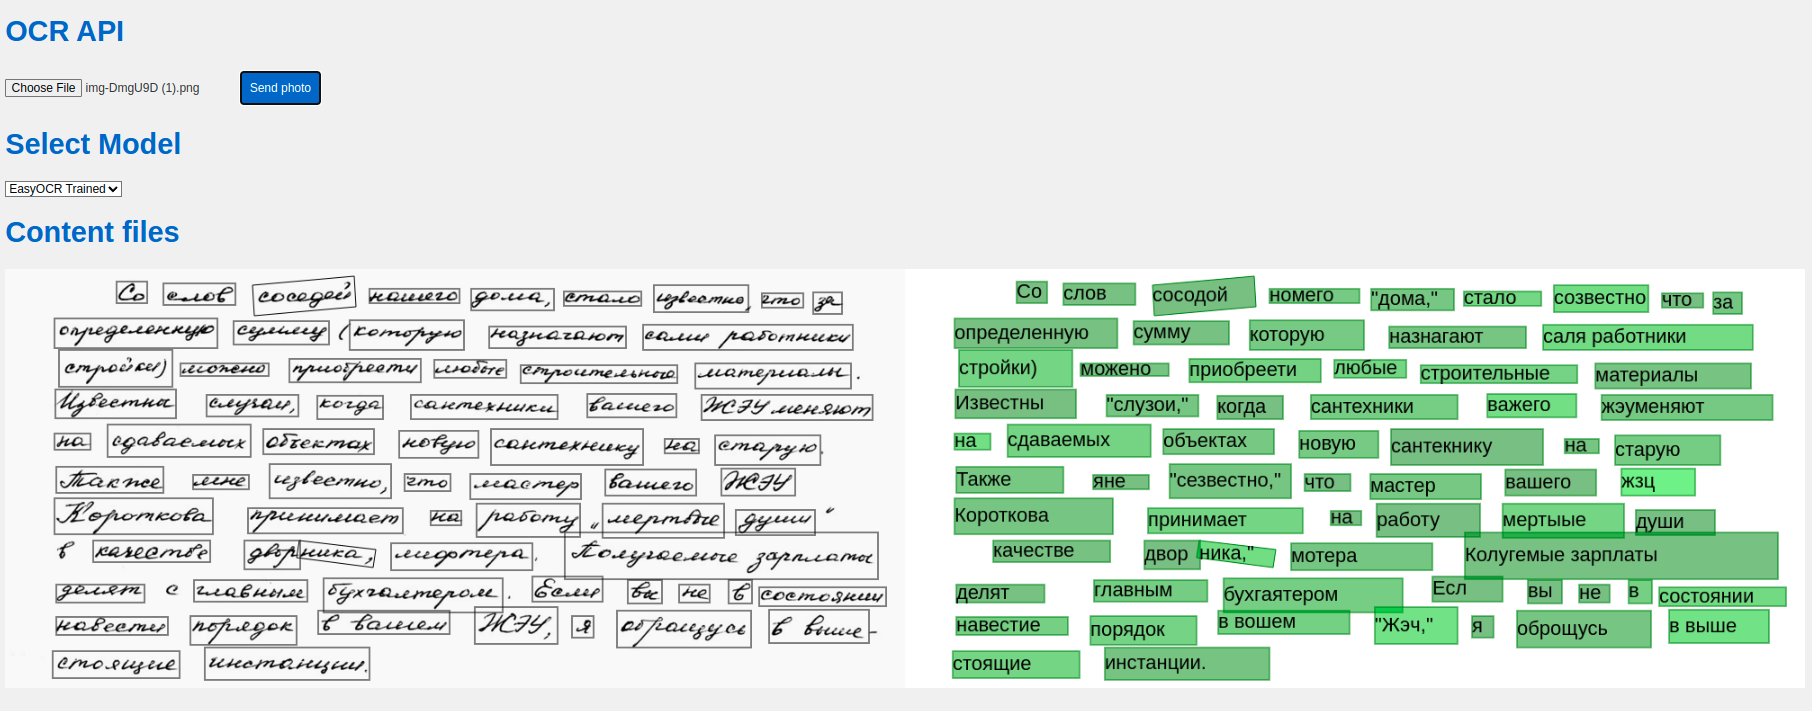 OCR API
Choose File img-DmgU9D (1).png Send photo
Select Model
EasyOCR Trained
Content files
Со слов соседей нашего дома, стало известно, что за
определенную сумму (которую назначают сами работники
стройки) можено приобрести любые строительные материалы.
Известны случаи, когда сантехники вашего ЖЭУ меняют
на сдаваемых объектах новую сантехнику на старую.
Также мне известно, что мастер вашего ЖЭУ
Короткова принимает на работу „мертвые души"
в качестве дворника, лифтера. Получаемые зарплаты
делят с главным бухгалтером. Если вы не в состоянии
навести порядок в вашем ЖЭУ, я обращусь в выше-
стоящие инстанции.
Со слов сосодой номего "дома," стало созвестно что за
определенную сумму которую назнагают саля работники
стройки) можено приобреети любые строительные материалы
Известны "слузои," когда сантехники важего жэуменяют
на сдаваемых объектах новую сантекнику на старую
Также яне "сезвестно," что мастер вашего жзц
Короткова принимает на работу мертыые души
качестве двор ника," мотера Колугемые зарплаты
делят главным бухгаятером Есл вы не в состоянии
навестие порядок в вошем "Жэч," я оброщусь в выше
стоящие инстанции.